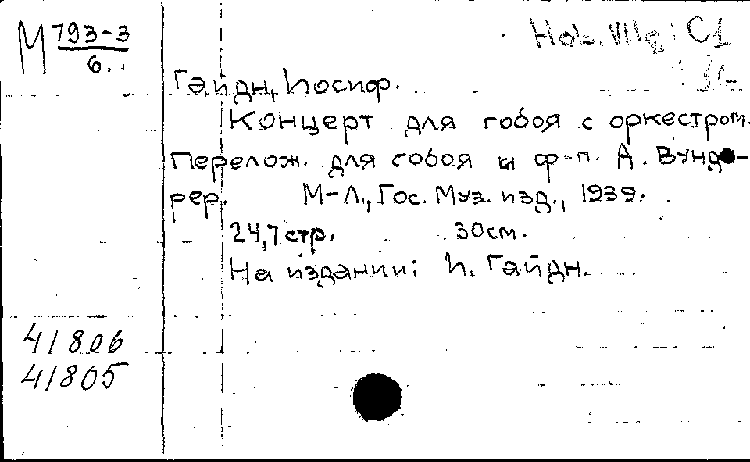 М 793-3
6.
Ноb. VIIg: С1
Гайдн, Иосиф.
Концерт для гобоя с оркестром.
Перелож. для гобоя и ф-п. А. Вунде-
рер. М-Л., Гос. Муз. изд., 1939.
24,7 стр. 30см.
На издании: И. Гайдн.
41806
41805